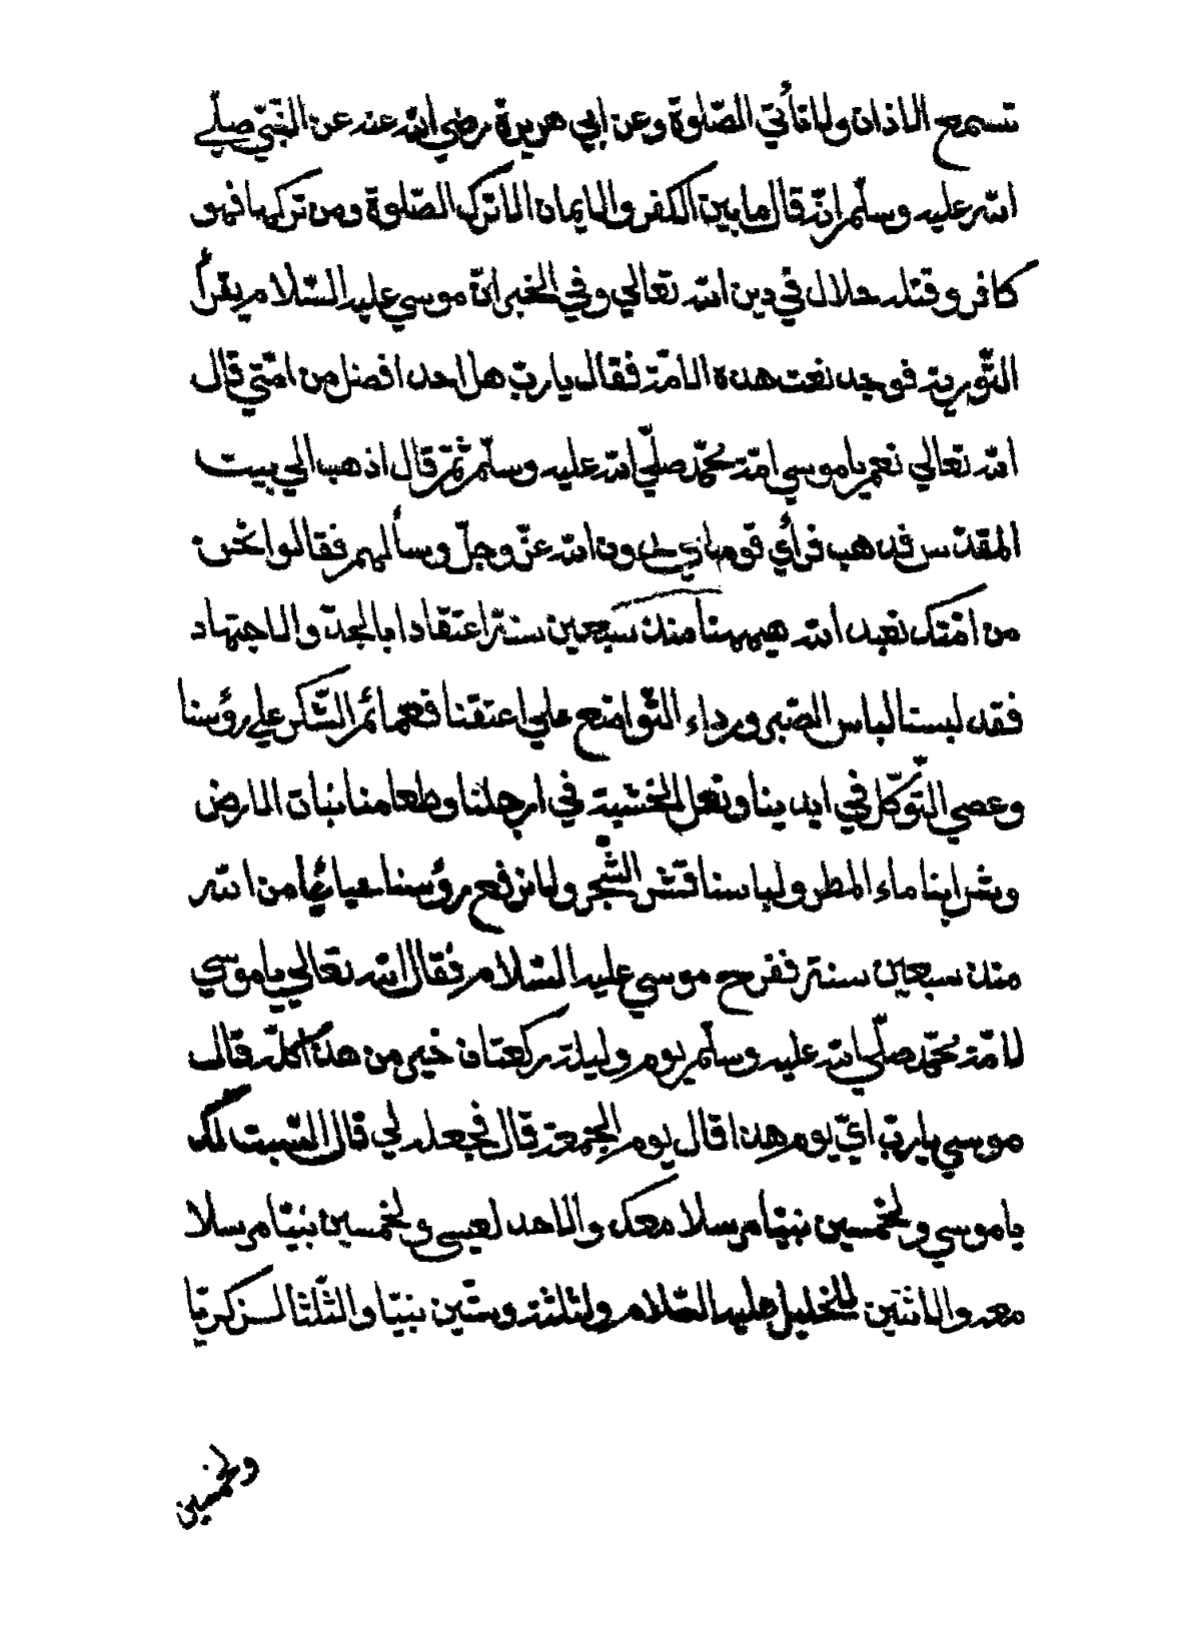 تسمع الاذان ولا تأتي الصّلوة وعن ابي هريرة رضي الله عنه عن النّبيّ صلّي
الله عليه وسلّم انّه قال ما بين الكفر والايمان الا ترك الصّلوة ومن تركها فهو
كافر وقتله حلال في دين الله تعالي وفي الخبر انّ موسي عليه السّلام يقرأ
التّورية فوجد نعت هذه الامّة فقال يا ربّ هل احد افضل من امّتي قال
الله تعالي نعم يا موسي امّة محمّد صلّي الله عليه وسلّم ثمّ قال اذهب الي بيت
المقدّس فذهب فرأي قوما يذكرون الله عزّ وجلّ وسألهم فقالوا نحن
من امّتك نعبد الله هيهنا منذ سبعين سنة اعتقادا بالجدّ والاجتهاد
فقد لبسنا لباس الصّبر ورداء التّواضع علي اعتقنا فعمائم الشّكر علي رؤسنا
وعصي التّوكّل في ايدينا ونعل الخشية في ارجلنا وطعامنا نبات الارض
وشرابنا ماء المطر ولباسنا قشر الشّجر ولا نرفع رؤسنا حيائا من الله
منذ سبعين سنة ففرح موسي عليه السّلام فقال الله تعالي يا موسي
لامّة محمّد صلّي الله عليه وسلّم يوم وليلة ركعتان خير من هذا كلّه قال
موسي يا ربّ ايّ يوم هذا قال يوم الجمعة قال فجعله لي قال السّبت لك
يا موسي ولخمسين نبيّا مرسلا معك والاحد لعيسي ولخمسين نبيّا مرسلا
معه والاثنين للخليل عليه السّلام ولثلثة وستّين نبيّا والثّلثا لزكريّا
ولخمسين